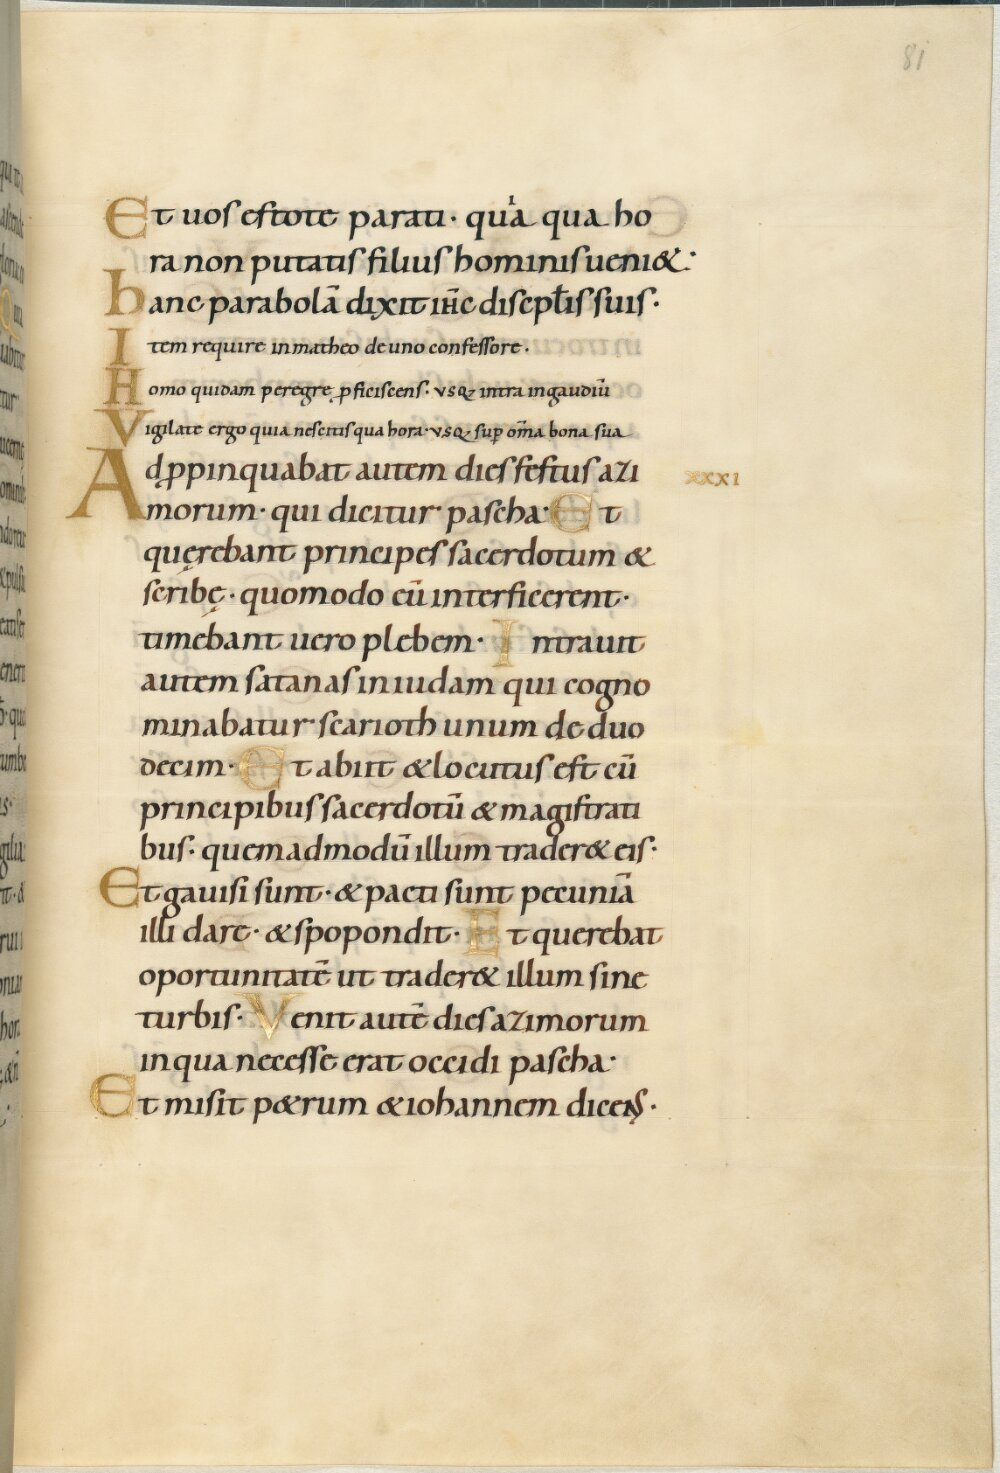 81
Et uos estote parati · quia qua ho
ra non putatis filius hominis ueni&·
hanc parabolā dixit ihc discipłis suis·
Item require in matheo de uno confessore·
Homo quidam peregre ꝓficiscens· vsq; intra in gaudiū
Vigilate ergo quia nescitis qua hora· vsq; sup om̄a bona sua
Adꝓpinquabat autem dies festus azi
XXXI
morum· qui dicitur pascha· Et
quęrebant principes sacerdotum &
scribę· quomodo eū interficerent·
timebant uero plebem· Intrauit
autem satanas in iudam qui cogno
minabatur scarioth unum de duo
decim· Et abiit & locutus est cū
principibus sacerdotū & magistrati
bus· quemadmodū illum trader& eis·
Et gauisi sunt· & pacti sunt pecuniā
illi dare· & spopondit· Et querebat
oportunitatē ut trader& illum sine
turbis· Venit autē dies azimorum
in qua necesse erat occidi pascha·
Et misit p&rum & iohannem dicens·